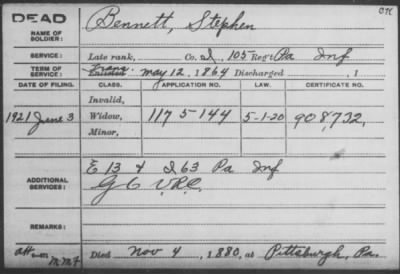 DEAD
NAME OF SOLDIER:
Bennett, Stephen
SERVICE:
Late rank, Co. I, 105 Reg't Pa Inf
TERM OF SERVICE:
Trans. Enlisted May 12, 1864 Discharged , 1
DATE OF FILING. CLASS. APPLICATION NO. LAW. CERTIFICATE NO.
Invalid,
1921 June 3 Widow, 1175-144 5-1-20 908,732,
Minor,
ADDITIONAL SERVICES:
E 13 & I 63 Pa Inf
G 6 V.R.C.
REMARKS:
Died Nov 4, 1880, at Pittsburgh, Pa.